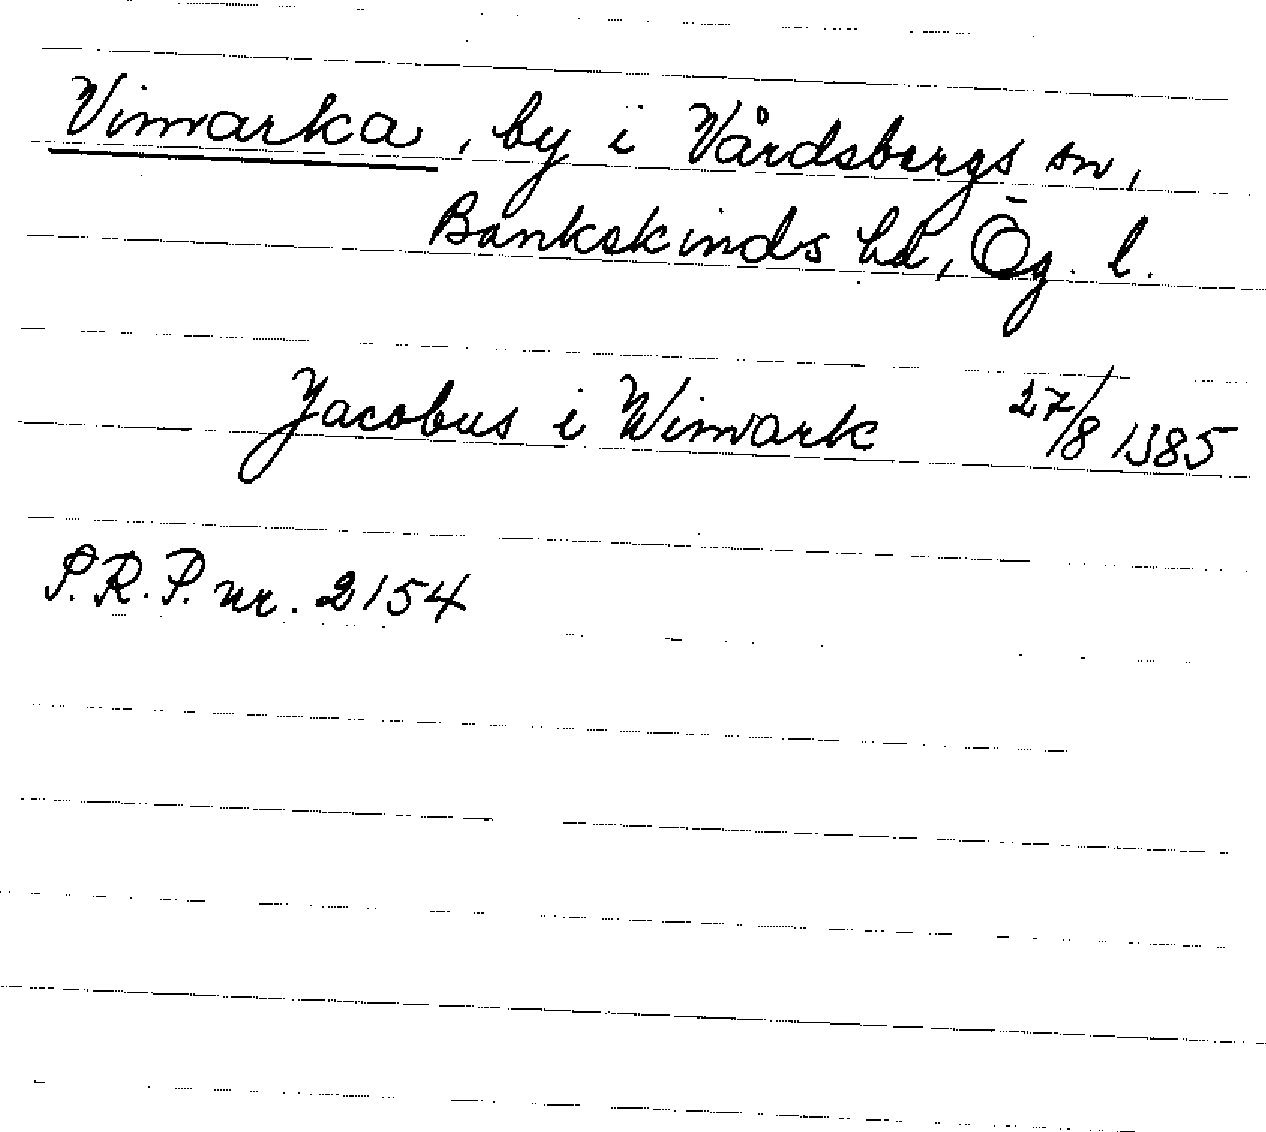 Vimarka, by i Vårdsbergs sn,
Bankekinds hd, Ög. l.
Jacobus i Wimark 27/8 1385
S.R.P. nr. 2154